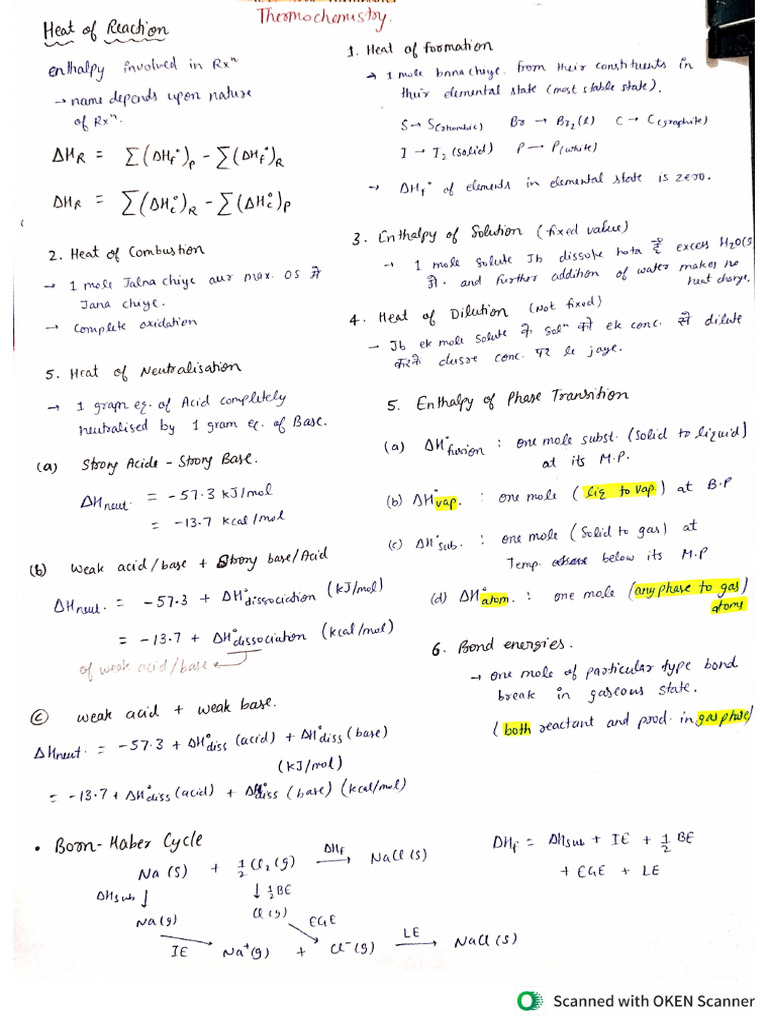 Thermochemistry.
Heat of Reaction
enthalpy involved in Rxⁿ
→ name depends upon nature
of Rxⁿ.
ΔH_R = Σ(ΔH_f°)_P - Σ(ΔH_f°)_R
ΔH_R = Σ(ΔH_c°)_R - Σ(ΔH_c°)_P
1. Heat of formation
→ 1 mole bnna chiye. from their constituents in
their elemental state (most stable state).
S → S(rhombic) Br → Br₂(l) C → C(graphite)
I → I₂(solid) P → P(white)
→ ΔH_f° of elements in elemental state is zero.
2. Heat of Combustion
→ 1 mole Jalna chiye aur max. OS में
Jana chiye.
→ complete oxidation
3. Enthalpy of Solution (fixed value)
→ 1 mole solute Jb dissolve hota है excess H₂O(
में. and further addition of water makes no
heat change.
4. Heat of Dilution (Not fixed)
→ Jb ek mole solute के solⁿ को ek conc. से dilute
करके dusre conc. पर le jaye.
5. Heat of Neutralisation
→ 1 gram eq. of Acid completely
neutralised by 1 gram eq. of Base.
(a) Strong Acide - Strong Base.
ΔH neut. = -57.3 kJ/mol
= -13.7 kcal/mol
(b) weak acid/base + Strong base/Acid
ΔH neut. = -57.3 + ΔH°dissociation (kJ/mol)
= -13.7 + ΔH°dissociation (kcal/mol)
of weak acid/base ←
(c) weak acid + weak base.
ΔH neut. = -57.3 + ΔH°diss (acid) + ΔH°diss (base)
(kJ/mol)
= -13.7 + ΔH°diss (acid) + ΔH°diss (base) (kcal/mol)
5. Enthalpy of Phase Transition
(a) ΔH°fusion : one mole subst. (Solid to liquid)
at its M.P.
(b) ΔH°vap. : one mole (liq to vap) at B.P
(c) ΔH°sub. : one mole (Solid to gas) at
Temp. below its M.P
(d) ΔH°atom. : one mole (any phase to gas)
atoms
6. Bond energies.
→ one mole of particular type bond
break in gaseous state.
(both reactant and prod. in gas phase)
• Born-Haber Cycle
Na(s) + ½Cl₂(g) —ΔH_f→ NaCl(s)
ΔHsub ↓ ↓ ½BE
Na(g) Cl(g) EGE
IE → Na⁺(g) + Cl⁻(g) —LE→ NaCl(s)
ΔH_f = ΔHsub + IE + ½ BE
+ EGE + LE
Scanned with OKEN Scanner